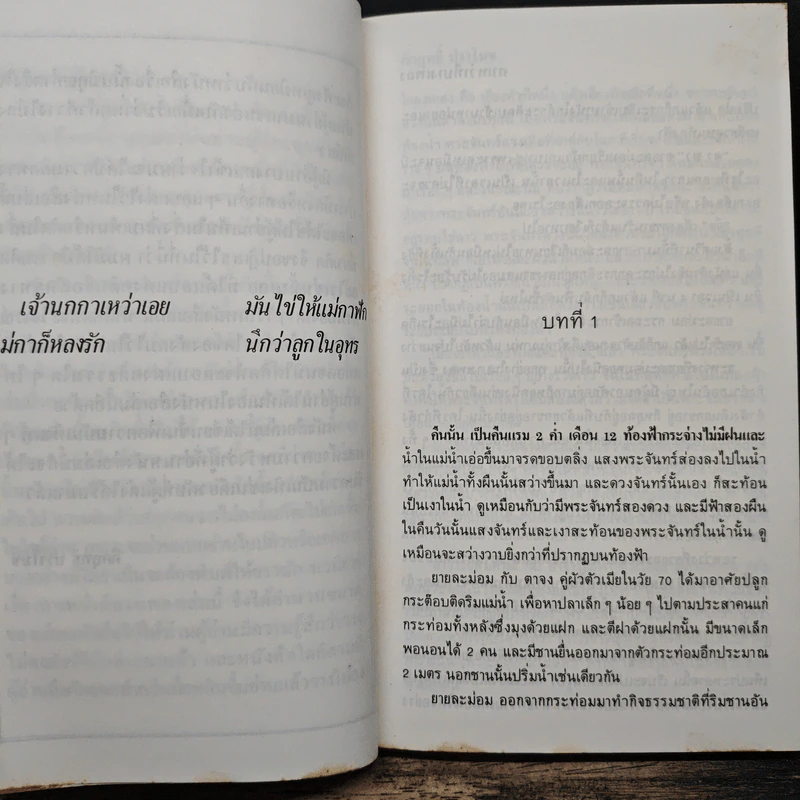 เจ้านกกาเหว่าเอย มันไข่ให้แม่กาฟัก
ม่กาก็หลงรัก นึกว่าลูกในอุทร
บทที่ 1
คืนนั้น เป็นคืนแรม 2 ค่ำ เดือน 12 ท้องฟ้ากระจ่างไม่มีฝนและ
น้ำในแม่น้ำเอ่อขึ้นมาจรดขอบตลิ่ง แสงพระจันทร์ส่องลงไปในน้ำ
ทำให้แม่น้ำทั้งผืนนั้นสว่างขึ้นมา และดวงจันทร์นั้นเอง ก็สะท้อน
เป็นเงาในน้ำ ดูเหมือนกับว่ามีพระจันทร์สองดวง และมีฟ้าสองผืน
ในคืนวันนั้นแสงจันทร์และเงาสะท้อนของพระจันทร์ในน้ำนั้น ดู
เหมือนจะสว่างวาบยิ่งกว่าที่ปรากฏบนท้องฟ้า
ยายละม่อม กับ ตาจง คู่ผัวตัวเมียในวัย 70 ได้มาอาศัยปลูก
กระต๊อบติดริมแม่น้ำ เพื่อหาปลาเล็ก ๆ น้อย ๆ ไปตามประสาคนแก่
กระท่อมทั้งหลังซึ่งมุงด้วยแฝก และตีฝาด้วยแฝกนั้น มีขนาดเล็ก
พอนอนได้ 2 คน และมีชานยื่นออกมาจากตัวกระท่อมอีกประมาณ
2 เมตร นอกชานนั้นปริ่มน้ำเช่นเดียวกัน
ยายละม่อม ออกจากกระท่อมมาทำกิจธรรมชาติที่ริมชานอัน